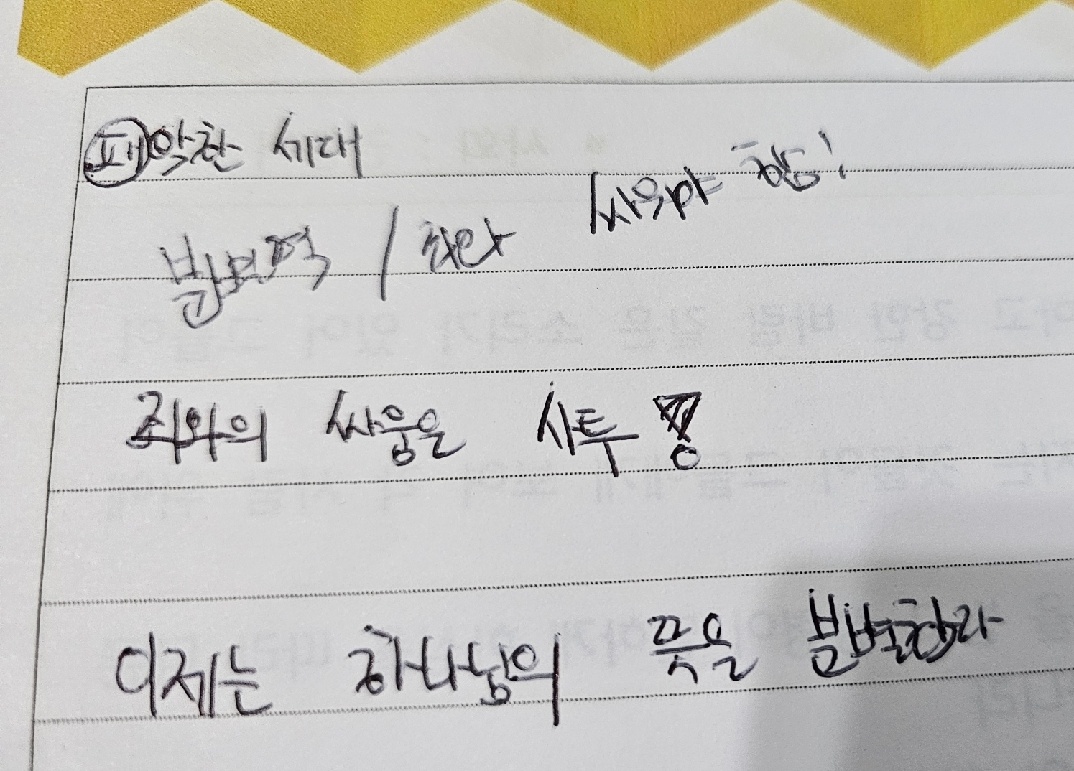 패악한 세대
싸우야 함!
분별력 / 차단
죄와의 싸움은 사투
이제는 하나님의 뜻을 분별하라